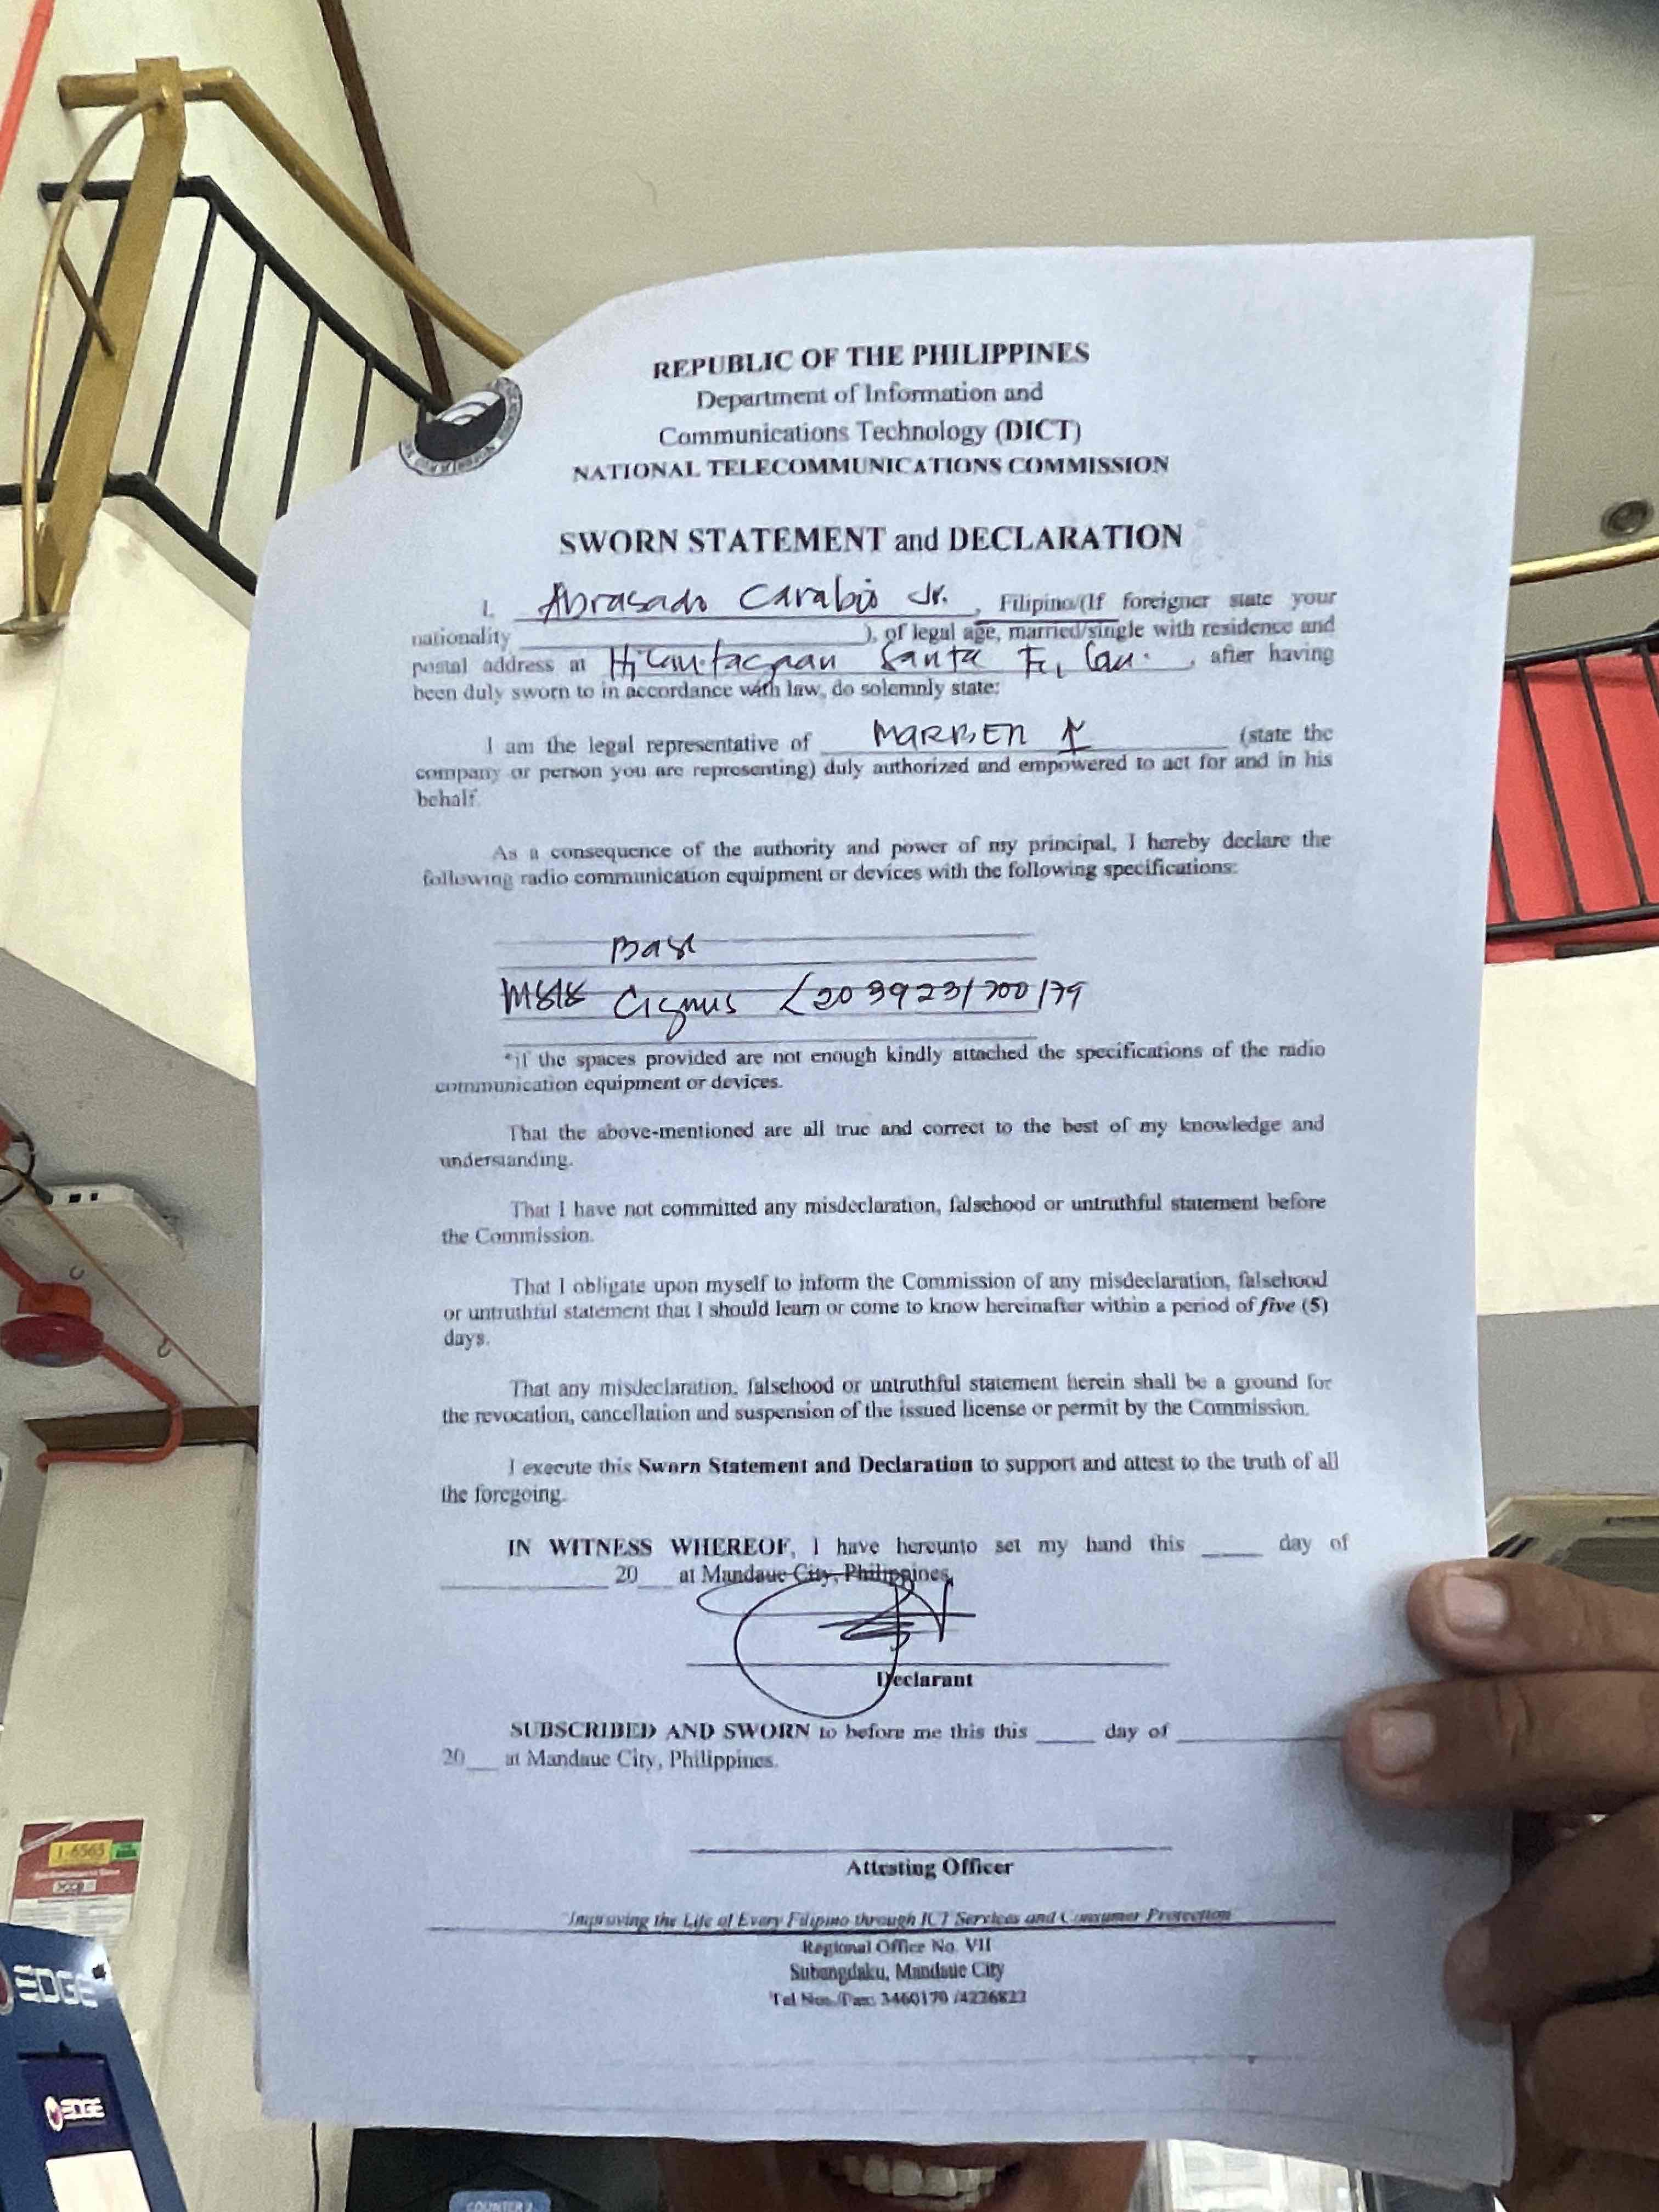 REPUBLIC OF THE PHILIPPINES
Department of Information and
Communications Technology (DICT)
NATIONAL TELECOMMUNICATIONS COMMISSION
SWORN STATEMENT and DECLARATION
I, Abrasado Carabio Jr. , Filipino/(If foreigner state your
nationality ____________), of legal age, married/single with residence and
postal address at Hilantagaan Santa Fe, , after having
been duly sworn to in accordance with law, do solemnly state:
I am the legal representative of MARBEN I (state the
company or person you are representing) duly authorized and empowered to act for and in his
behalf.
As a consequence of the authority and power of my principal, I hereby declare the
following radio communication equipment or devices with the following specifications:
Base
Cignus 203923/700/79
*if the spaces provided are not enough kindly attached the specifications of the radio
communication equipment or devices.
That the above-mentioned are all true and correct to the best of my knowledge and
understanding.
That I have not committed any misdeclaration, falsehood or untruthful statement before
the Commission.
That I obligate upon myself to inform the Commission of any misdeclaration, falsehood
or untruthful statement that I should learn or come to know hereinafter within a period of five (5)
days.
That any misdeclaration, falsehood or untruthful statement herein shall be a ground for
the revocation, cancellation and suspension of the issued license or permit by the Commission.
I execute this Sworn Statement and Declaration to support and attest to the truth of all
the foregoing.
IN WITNESS WHEREOF, I have hereunto set my hand this _____ day of
____________ 20___ at Mandaue City, Philippines.
Declarant
SUBSCRIBED AND SWORN to before me this this _____ day of ____________
20___ at Mandaue City, Philippines.
Attesting Officer
"Improving the Life of Every Filipino through ICT Services and Consumer Protection
Regional Office No. VII
Subangdaku, Mandaue City
Tel Nos./Fax: 3460170 /4226822
1-6565
EDGE
EDGE
COUNTER 2